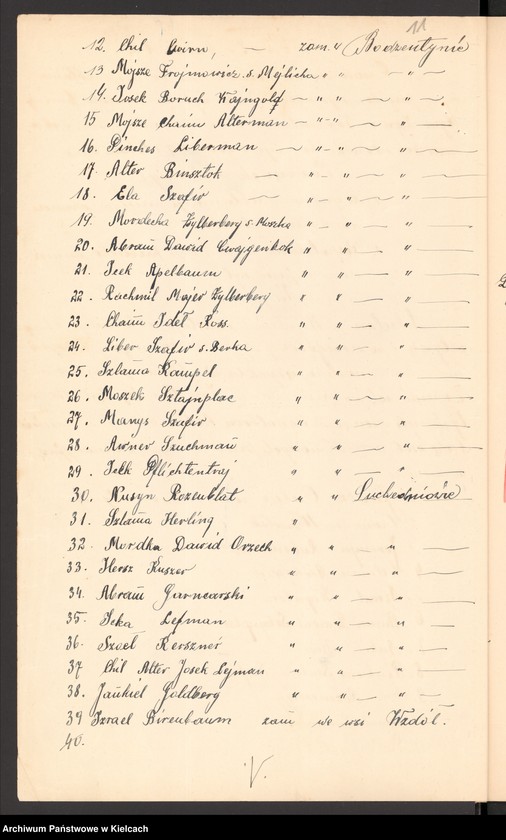 11
12. Chil Cwirn, — zam. w Bodzentynie
13 Mojsze Frojmowicz s. Mejlicha " " — " —
14. Josek Boruch Wajngold — " " — " —
15 Mojsze Chaim Alterman — " — " — " —
16. Pinches Liberman — " — " — " —
17. Alter Binsztok — " — " — " —
18. Ela Szafir — " — " — " —
19. Mordecha Zylberberg s. Moszka " — " — " —
20. Abram Dawid Cwajgenbok " " — " —
21. Icek Apelbaum " " — " —
22. Rachmil Majer Zylberberg " " — " —
23. Chaim Idel Ross. " " — " —
24. Liber Szafir s. Berka " " — " —
25. Szlama Kampel " " — " —
26. Moszek Sztajnplac " " — " —
27. Manys Szafir " " — " —
28. Awner Szuchman " " — " —
29. Icek Pflichtentraj " " — " —
30. Nusyn Rozenblat " " Suchedniowie
31. Szlama Herling "
32. Mordka Dawid Orzech " " " —
33. Hersz Kuszer " " — " —
34. Abram Garncarski " " — " —
35. Icka Lefman " " — " —
36. Szoel Kerszner " " — " —
37 Chil Alter Josek Lejman " " — " —
38. Jankiel Goldberg " " — " —
39 Izrael Birenbaum zam we wsi Wzdół.
40.
V.
Archiwum Państwowe w Kielcach